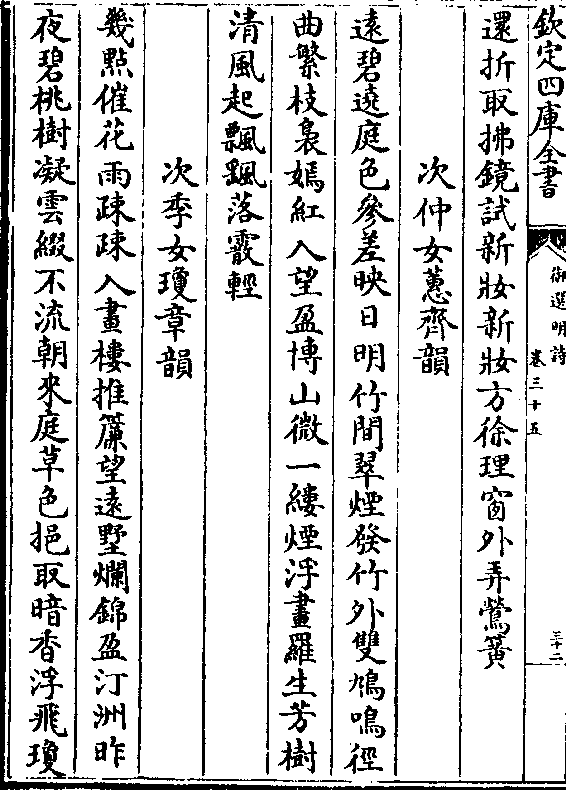 欽定四庫全書
御選明詩
卷三十五
三十二
還折取拂鏡試新妝新妝方徐理窗外弄鶯簧
次仲女蕙齊韻
遠碧遶庭色參差映日明竹間翠煙發竹外雙鳩鳴徑
曲繁枝裊嫣紅入望盈博山微一縷煙浮畫羅生芳樹
清風起飄飄落霰輕
次季女瓊章韻
幾點催花雨疎疎入畫樓推簾望遠墅爛錦盈汀洲昨
夜碧桃樹凝雲綴不流朝來庭草色挹取暗香浮飛瓊